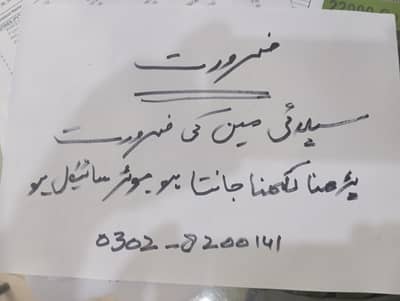 ضرورت
سپلائی مین کی ضرورت
پڑھنا لکھنا جانتا ہو موٹر سائیکل ہو
0302-8200141
22000